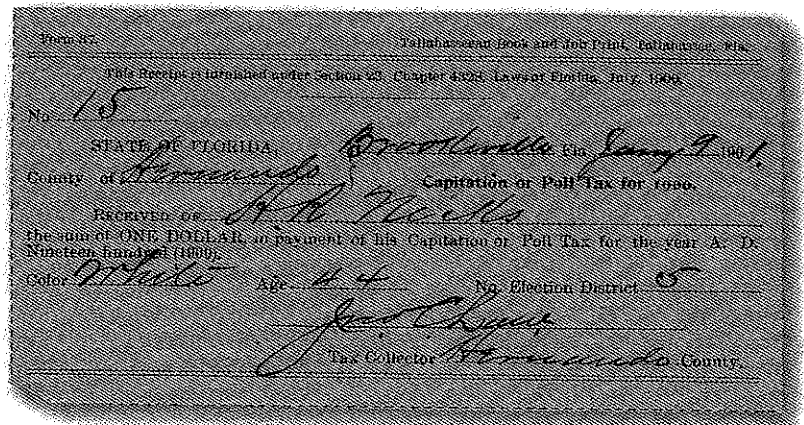 Form 87. Tallahasseean Book and Job Print, Tallahassee, Fla.
This Receipt is furnished under Section 23, Chapter 4323, Laws of Florida, July, 1900.
No. 15
STATE OF FLORIDA, Brooksville Fla Jany 9 1901.
County of Hernando } Capitation or Poll Tax for 1900.
RECEIVED OF H. R. Nicks
the sum of ONE DOLLAR, in payment of his Capitation or Poll Tax for the year A. D.
Nineteen hundred (1900).
Color White Age 44 No. Election District 5
Tax Collector Hernando County.